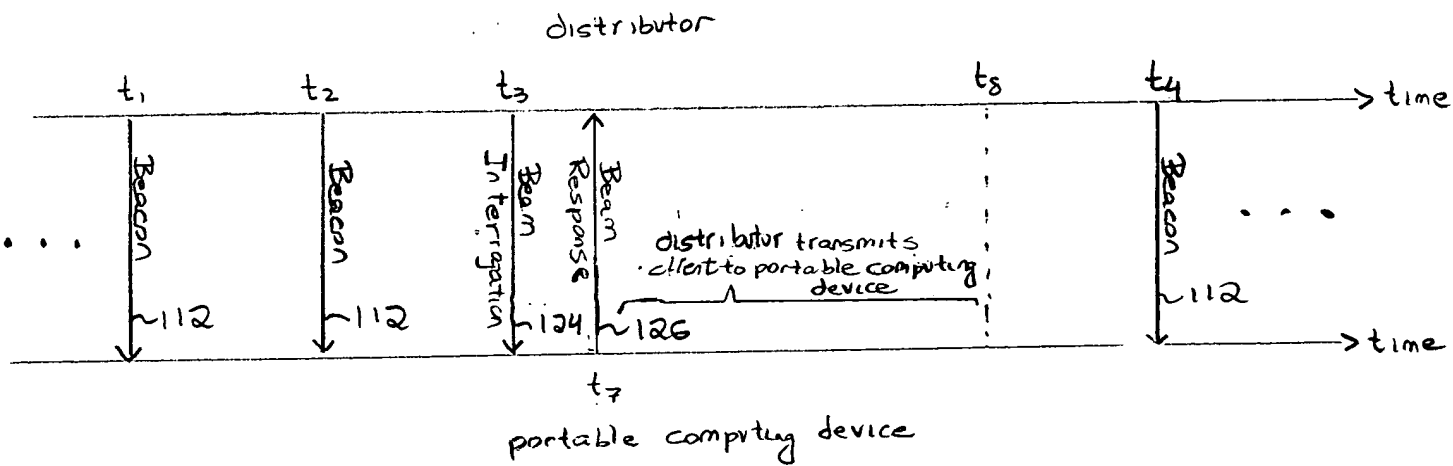 distributor
t1 t2 t3 t8 t4
time
Beacon
Beacon
Beam
Interragation
Beam
Response
Beacon
distributor transmits
client to portable computing
device
112
112
124
126
112
time
t7
portable computing device